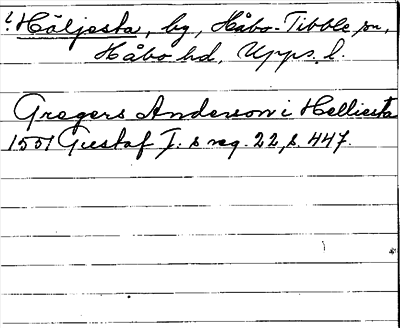 ! Häljesta, by, Håbo-Tibble sn,
Håbo hd, Upps. l.
Gregers Anderson i Helliesta
1551 Gustaf I. s reg. 22, s. 447.